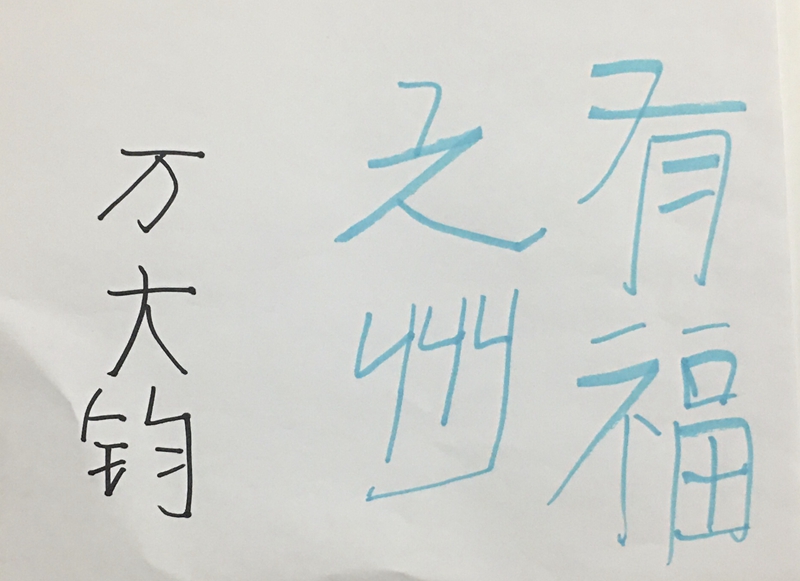 有福
之州
万大钧